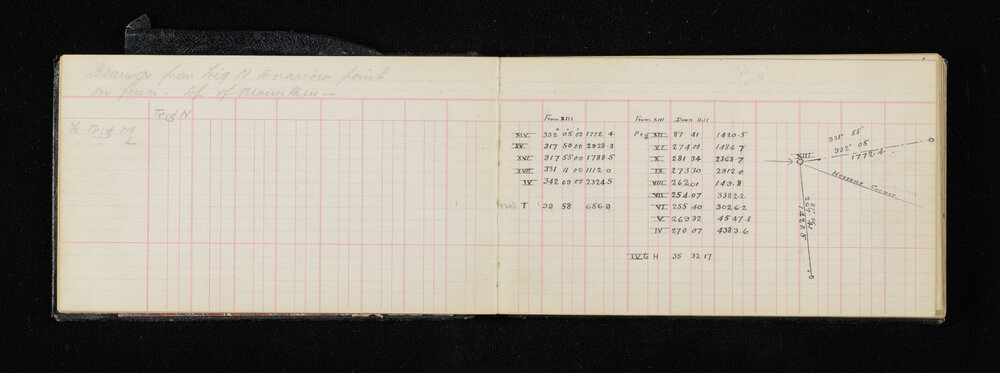 Bearings from trig N to various points
on fence - top of Mountain -
Trig N
To Trig M
" L
From XIII
XIV 332 05 00 1772.4
XV. 317 50 00 2928.3
XVI 317 55 00 1788.5
XVII 331 11 00 1112.0
IV 342 09 00 2324.5
T 32 58 656.2
From XIII Down Hill
Peg XII 87 41 1420.5
XI 274 10 1484.7
X 281 34 2363.7
IX 273 30 2912.0
VIII 262 01 149.8
VII 254.07 3382.2
VI 255 40 3026.2
V 269 32 4547.8
IV 270 07 4383.6
IV to H 35 32 17
335 55
332 05
1772.4
XIII
Corner
87° 41
267 41
1420.5